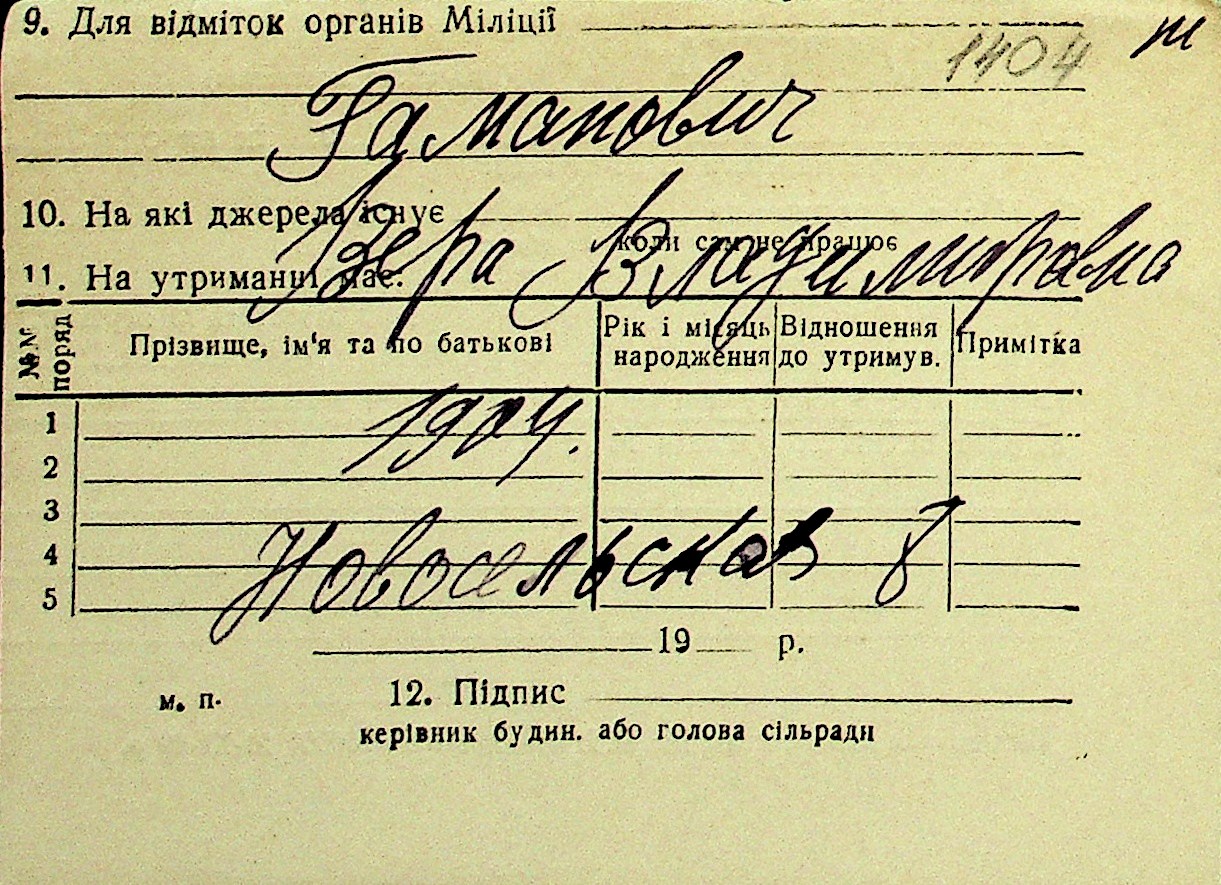 9. Для відміток органів Міліції
1404 ш
Гаманович
10. На які джерела існує
коли сам не працює
Вера Владимировна
11. На утриманні має:
№№ поряд Прізвище, ім'я та по батькові Рік і місяць народження Відношення до утримув. Примітка
1
1904.
2
3
Новосельская 8
4
5
19 р.
м. п. 12. Підпис
керівник будин. або голова сільради